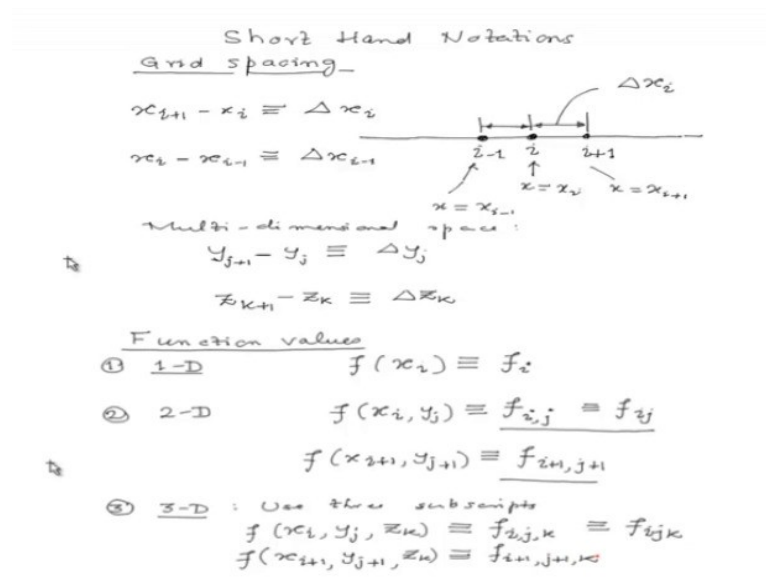 Short Hand Notations
Grid spacing
x_{i+1} - x_i ≡ Δx_i
Δx_i
x_i - x_{i-1} ≡ Δx_{i-1}
i-1 i i+1
x = x_i x = x_{i+1}
x = x_{i-1}
Multi-dimensional space:
y_{j+1} - y_j ≡ Δy_j
z_{k+1} - z_k ≡ Δz_k
Function values
① 1-D f(x_i) ≡ f_i
② 2-D f(x_i, y_j) ≡ f_{i,j} ≡ f_{ij}
f(x_{i+1}, y_{j+1}) ≡ f_{i+1,j+1}
③ 3-D : Use three subscripts
f(x_i, y_j, z_k) ≡ f_{i,j,k} ≡ f_{ijk}
f(x_{i+1}, y_{j+1}, z_k) ≡ f_{i+1,j+1,k}